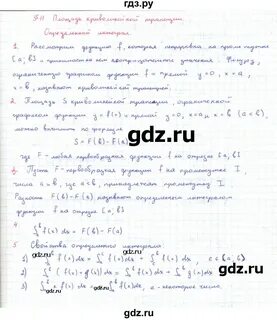 §11 Площадь криволинейной трапеции.
Определенный интеграл
1. Рассмотрим функцию f, которая непрерывна на промежутке
[a; b] и принимает неотрицательные значения. Фигуру,
ограниченную графиком функции f и прямой y=0, x=a,
x=b, называют криволинейной трапецией.
2. Площадь S криволинейной трапеции, ограниченной
графиком функции y=f(x) и прямой y=0, x=a, x=b (a<b),
можно вычислить по формуле
S = F(b) - F(a)
где F - любая первообразная функции f на отрезке [a; b]
3. Пусть F - первообразная функции f на промежутке I,
числа a и b, где a<b, принадлежат промежутку I.
Разность F(b) - F(a) называют определенным интегралом
функции f на отрезке [a; b]
4 ∫ₐᵇ f(x) dx = F(b) - F(a)
5 Свойства определенного интеграла.
gdz.ru
gdz.ru
gdz.ru
gdz.ru